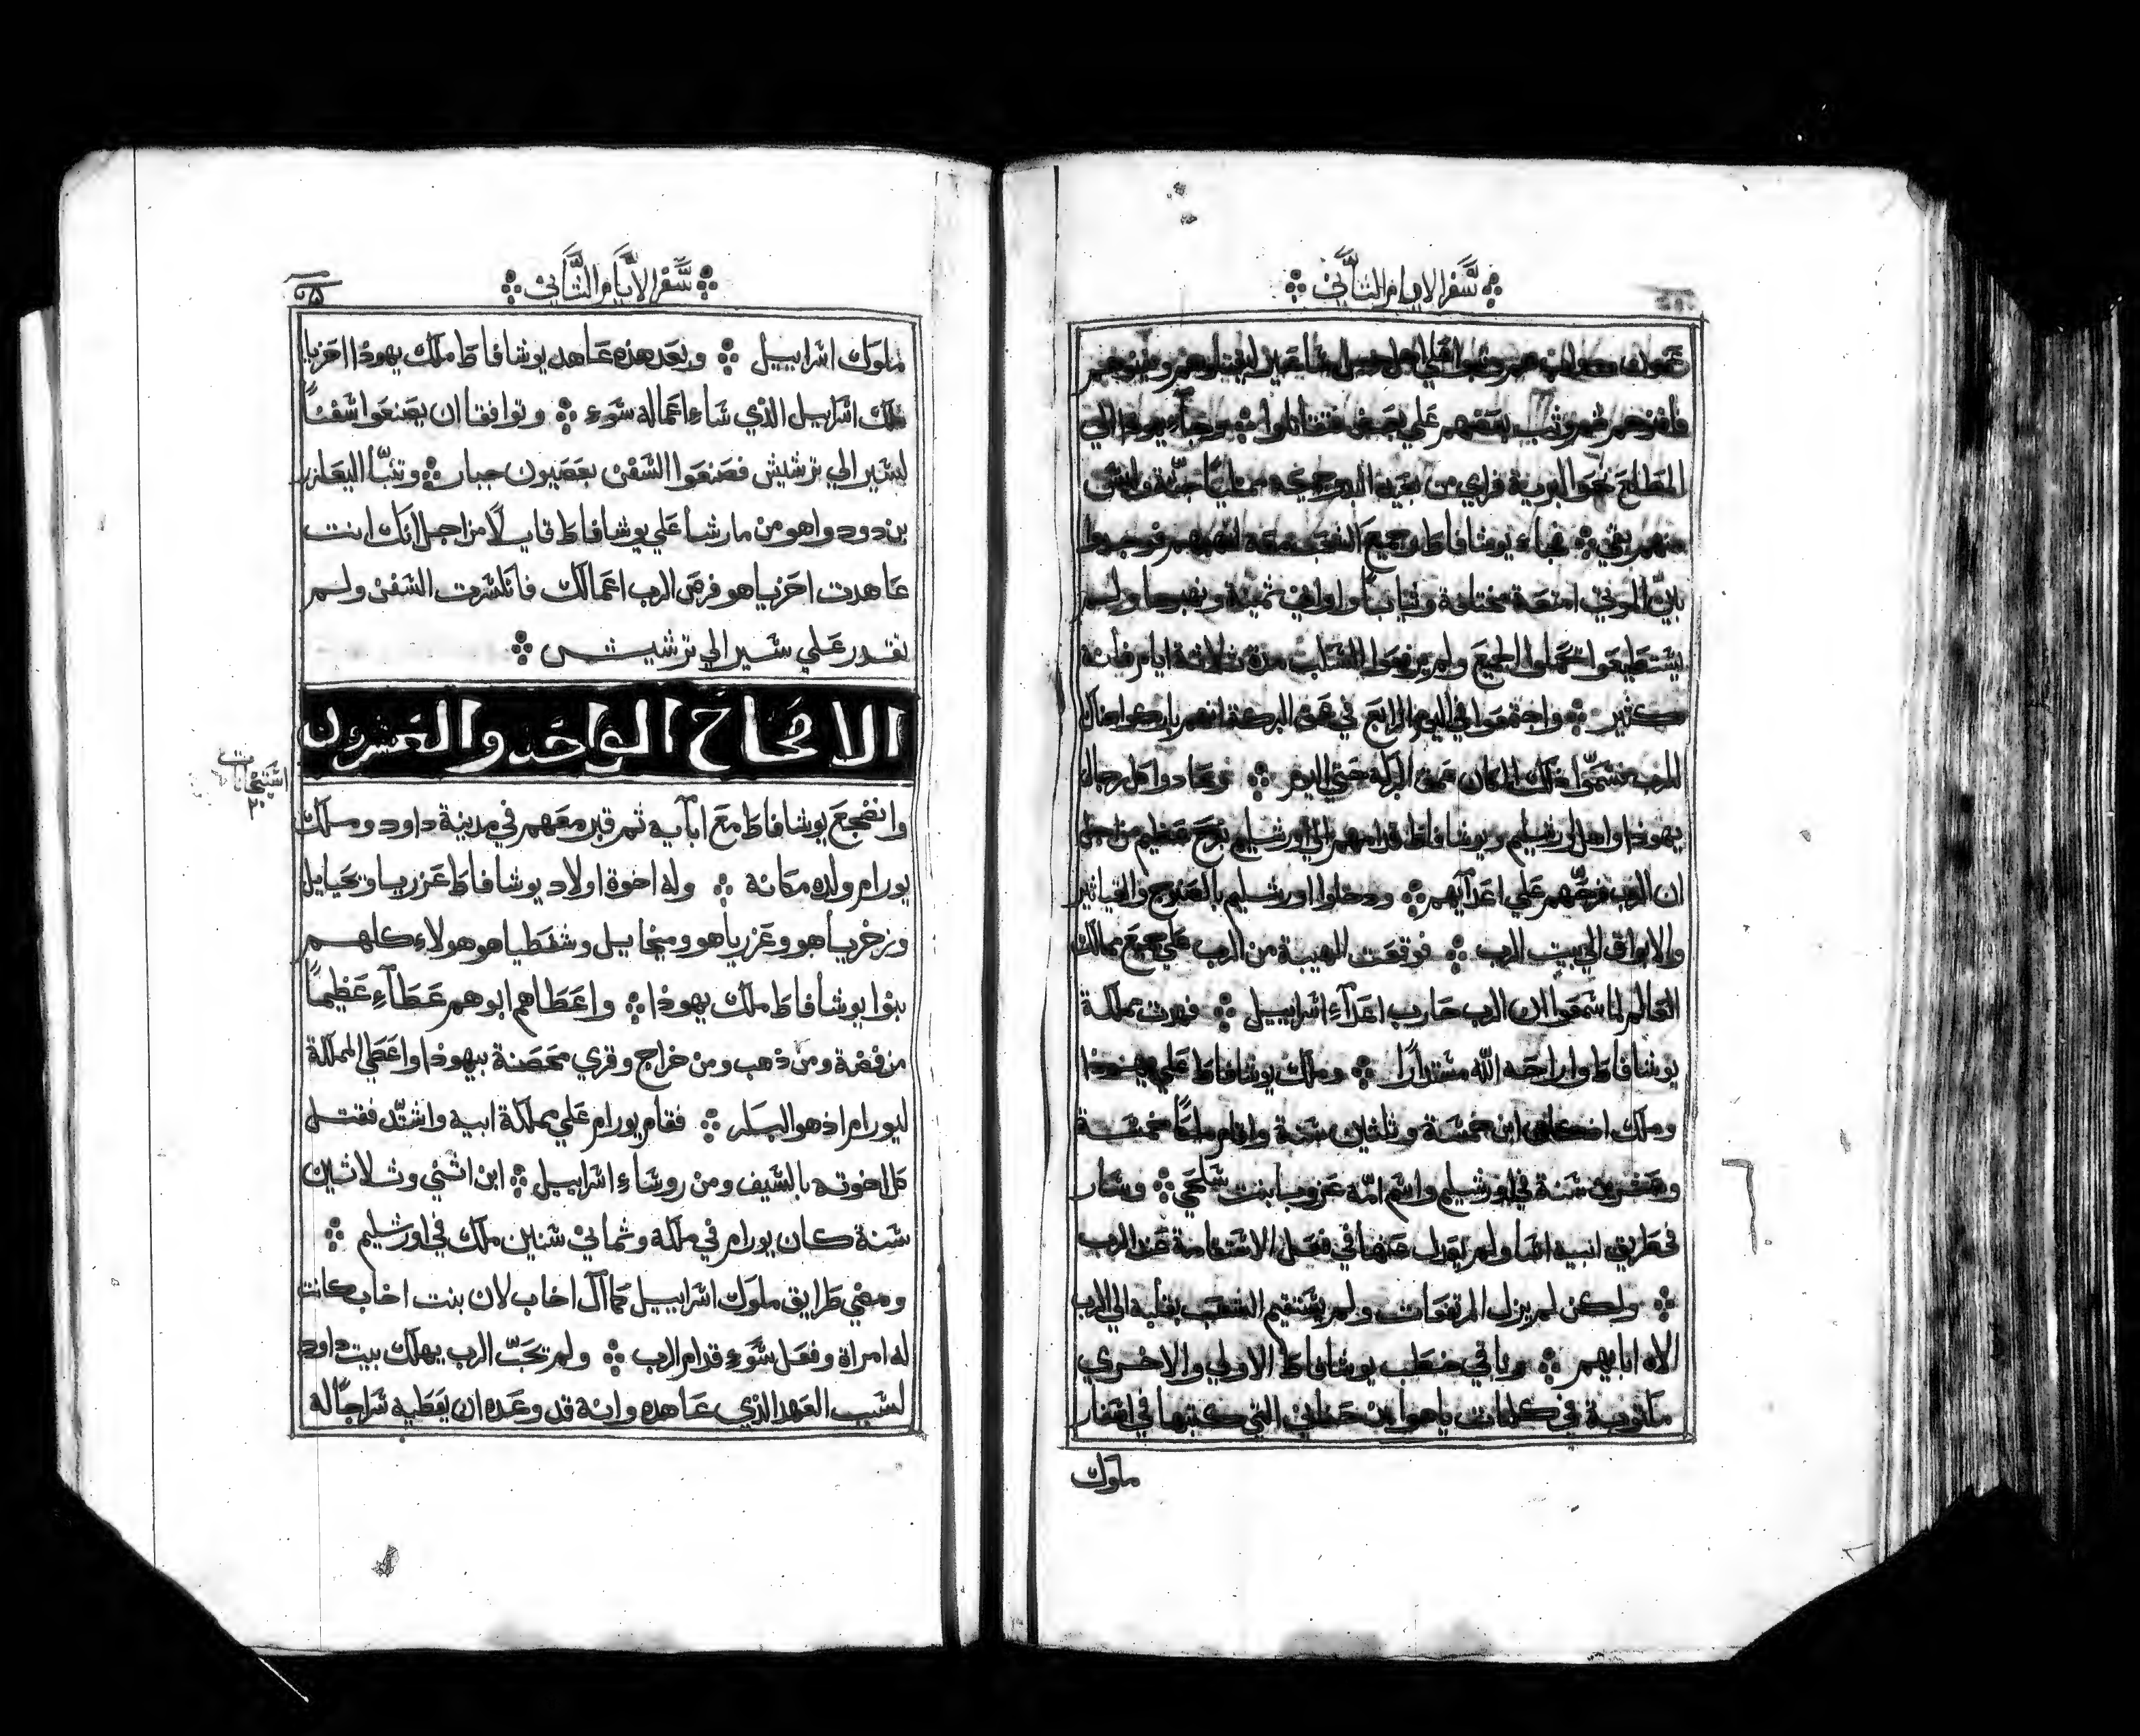 سفر الايام الثاني
فافرزهم ثم وثب بعضهم علي بعض فتقاتلوا ۞ وجاء يهوذا الي
المطلع نحو البرية فراي من بعيد
منهم بقي ۞ فجاء يوشافاط وجميع الشعب معه لنهبهم فوجدوا
بين الموتي امتعة مختلفة وثيابًا واواني ثمينة ونهبوها ولم
يستطيعوا الجميع ولم السلب مدة ثلاثة ايام فانه
كثير ۞ واجتمعوا في اليوم الرابع في عمق البركة انهم باركوا هناك
للرب فسمّي ذلك المكان عمق البركة حتي اليوم ۞ وعادوا كل رجال
يهوذا واهل اورشليم ويوشافاط قدامهم الي اورشليم بفرح عظيم من اجل
ان الرب فرّحهم علي اعدآيهم ۞ ودخلوا اورشليم بالعيدان والقياثير
والابواق الي بيت الرب ۞ فوقعت الهيبة من الرب علي جميع ممالك
العالم لما سمعوا ان الرب حارب اعدآءِ اسراييل ۞ فهدت مملكة
يوشافاط واراحه اللّه مستدارًا ۞ وملك يوشافاط علي يهوذا
وملك ابن خمسة وثلثين سنة واقام ملكًا خمسة
وعشرين سنة في اورشليم واسم امّه عزوبا بنت شلحي ۞ وسار
في طريق ابيه اسا ولم يعدل عنها في فعل الاستقامة قدام الرب
۞ ولكن لم يزل المرتفعات ولم يستقيم الشعب بقلبه الي الرب
الاه ابايهم ۞ وباقي خطب يوشافاط الاولي والاخري
مكتوبة في كلمات ياهوا بن حناني التي كتبها في اسفار
ملوك
سفر الايام الثاني
ملوك اسراييل ۞ وبعد هذه عاهد يوشافاط ملك يهوذا احزيا
ملك اسراييل الذي شاء اعماله سوء ۞ وتوافقا ان يصنعوا سفنًا
لتسير الي ترشيش فصنعوا السفن بعصيون جبار ۞ وتنبّا اليعازر
بن دودواهو من مارشا علي يوشافاط قايلًا من اجل انك انت
عاهدت احزياهو فرض الرب اعمالك فانكسرت السفن ولم
تقدر علي سير الي ترشيش ۞
الاصحاح الواحد والعشرون
وانضجع يوشافاط مع ابآيه ثم قبر معهم في مدينة داود وملك
يورام ولده مكانه ۞ وله اخوة اولاد يوشافاط عزريا وتحيايل
وزخرياهو وعزرياهو وميخاييل وشفطياهو هولاء كلهم
بنوا يوشافاط ملك يهوذا ۞ واعطاهم ابوهم عطآءِ عظيمًا
من فضة ومن ذهب ومن خراج وقري محصنة بيهوذا واعطي المملكة
ليورام اذ هو البكر ۞ فقام يورام علي مملكة ابيه واشتدّ فقتل
كل اخوته بالسيف ومن روساءِ اسراييل ۞ ابن اثني وثلاثين
سنة كان يورام في ملكه وثماني سنين ملك في اورشليم ۞
ومضي طرايق ملوك اسراييل كما آل اخاب لان بنت اخاب كانت
له امراة وفعل سوءِ قدام الرب ۞ ولم يحبّ الرب يهلك بيت داود
لسبب العهد الذي عاهده وانه قد وعده ان يعطيه سراجًا له